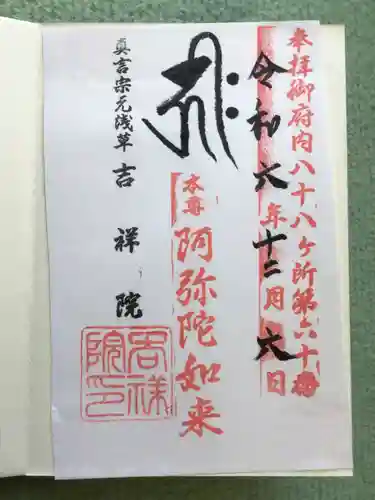 奉拝御府内八十八ヶ所第六十番
令和六年十二月六日
本尊
阿弥陀如来
真言宗元浅草
吉祥院
吉祥院印